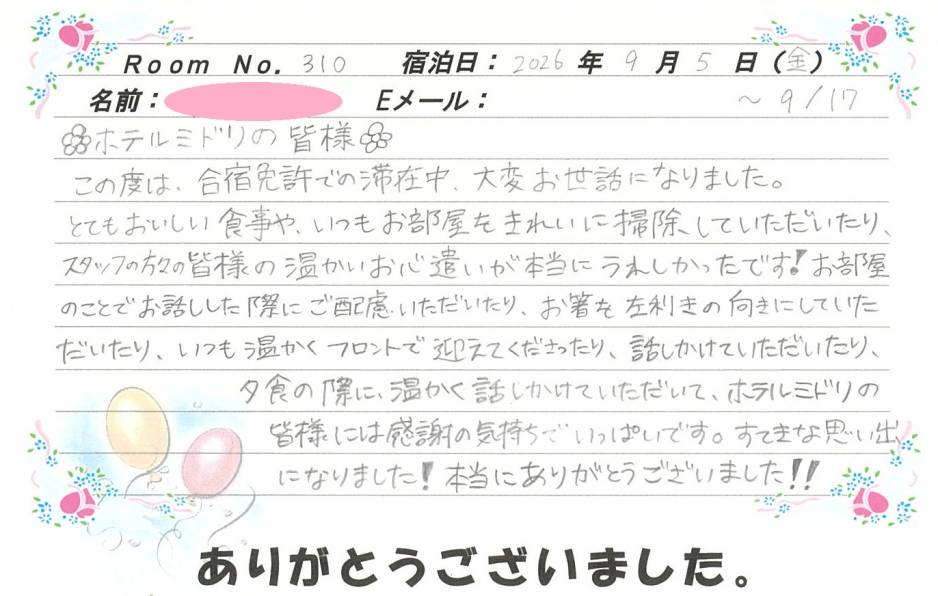 Room No. 310 宿泊日：2026年9月5日（金）
名前： Eメール： ～9/17
ホテルミドリの皆様
この度は、合宿免許での滞在中、大変お世話になりました。
とてもおいしい食事や、いつもお部屋をきれいに掃除していただいたり、
スタッフの方々の皆様の温かいお心遣いが本当にうれしかったです!お部屋
のことでお話しした際にご配慮いただいたり、お箸を左利きの向きにしていた
だいたり、いつも温かくフロントで迎えてくださったり、話しかけていただいたり、
夕食の際に、温かく話しかけていただいて、ホテルミドリの
皆様には感謝の気持ちでいっぱいです。すてきな思い出
になりました!本当にありがとうございました!!
ありがとうございました。